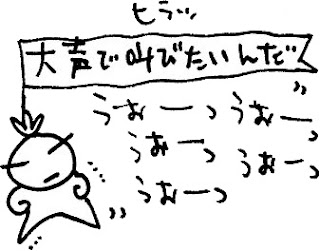 ヒラッ
大声で叫びたいんだ
うぉーっ うぉーっ
うぉーっ うぉーっ
うぉーっ